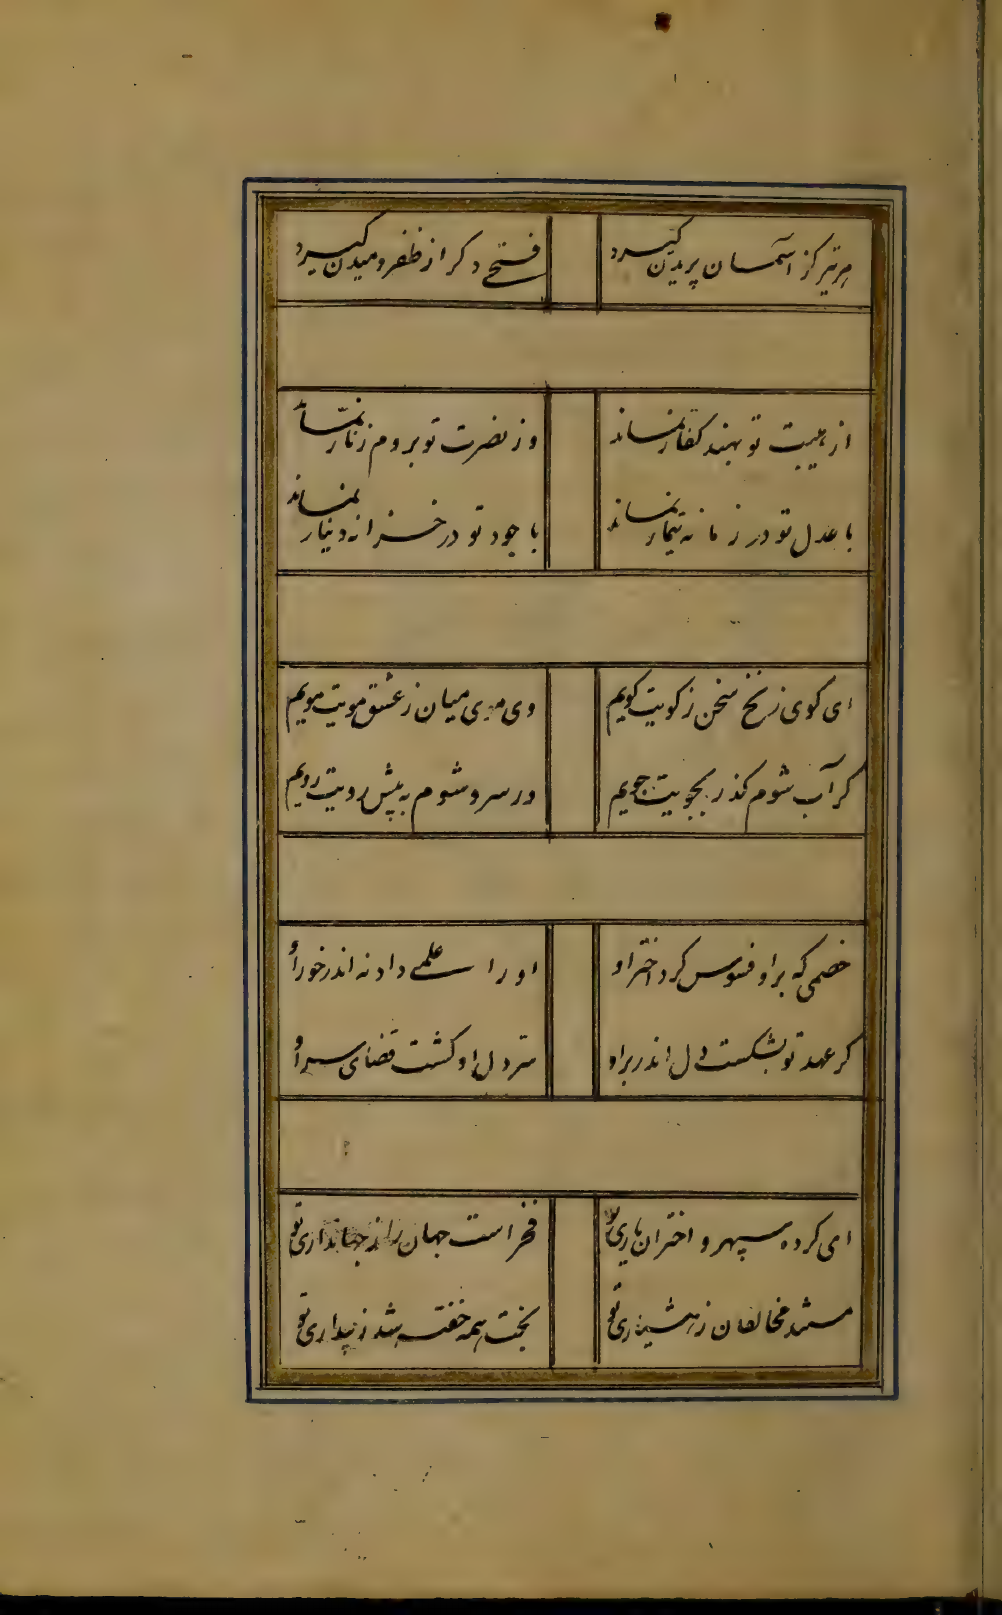 هر تیر کز آسمان پریدن گیرد فتحی دگر از ظفر دمیدن گیرد
از هیبت تو بهند کفار نماند وز نصرت تو بروم زنار نماند
با عدل تو در زمانه تیمار نماند با جود تو در خزانه دینار نماند
ای کوی زنخ سخن ز کویت کویم وی موی میان ز عشق مویت مویم
کر آب شوم کذر بجویت جویم ور سرو شوم به پیش رویت رویم
خصمی که بر او فسوس کرد اختر او او را علمی داد نه اندر خور او
کر عهد تو بشکست دل اندر بر او دل او کشت قضای سر او
ای کرده سپهر و اختران یاری تو فخر است جهان را ز جهانداری تو
مخالفان ز هشیاری تو بخت همه خفته شد ز بیداری تو